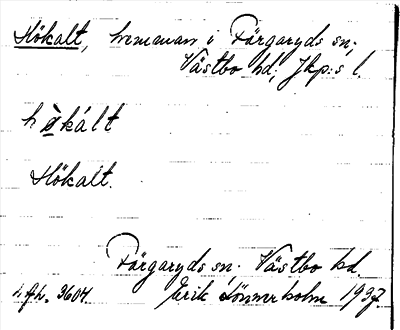 Hökalt, hemman i Färgaryds sn;
Västbo hd; Jkp:s l.
Hökalt.
Färgaryds sn; Västbo hd.
Erik Lönnerholm 1937.